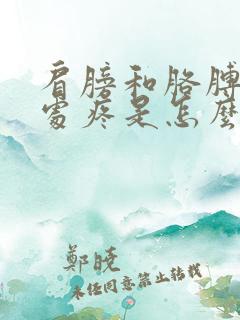 肩膀和胳膊
處疼是怎麼
鄭曉
未经同意禁止转载